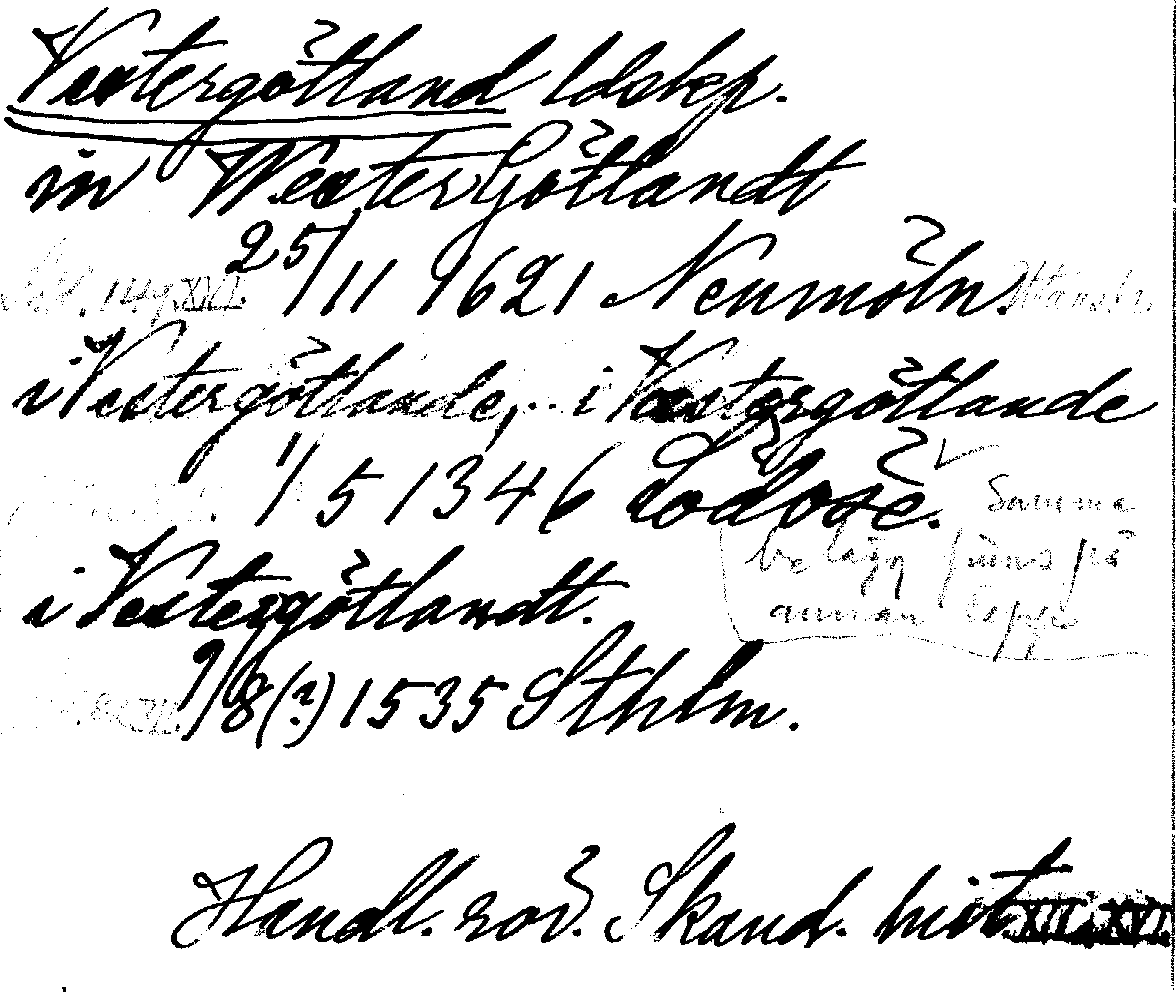 Vestergötland ldskp.
in WesterGötlandt
25/11 1621 Neumöln.
i Vestergötlande, .. i Vestergötlande
1/5 1346 Lödöse. Samma
belägg finns på
i Vestergötlandt. annan lapp
9/8 (?) 1535 Sthlm.
Handl. rör. Skand. hist XVI.